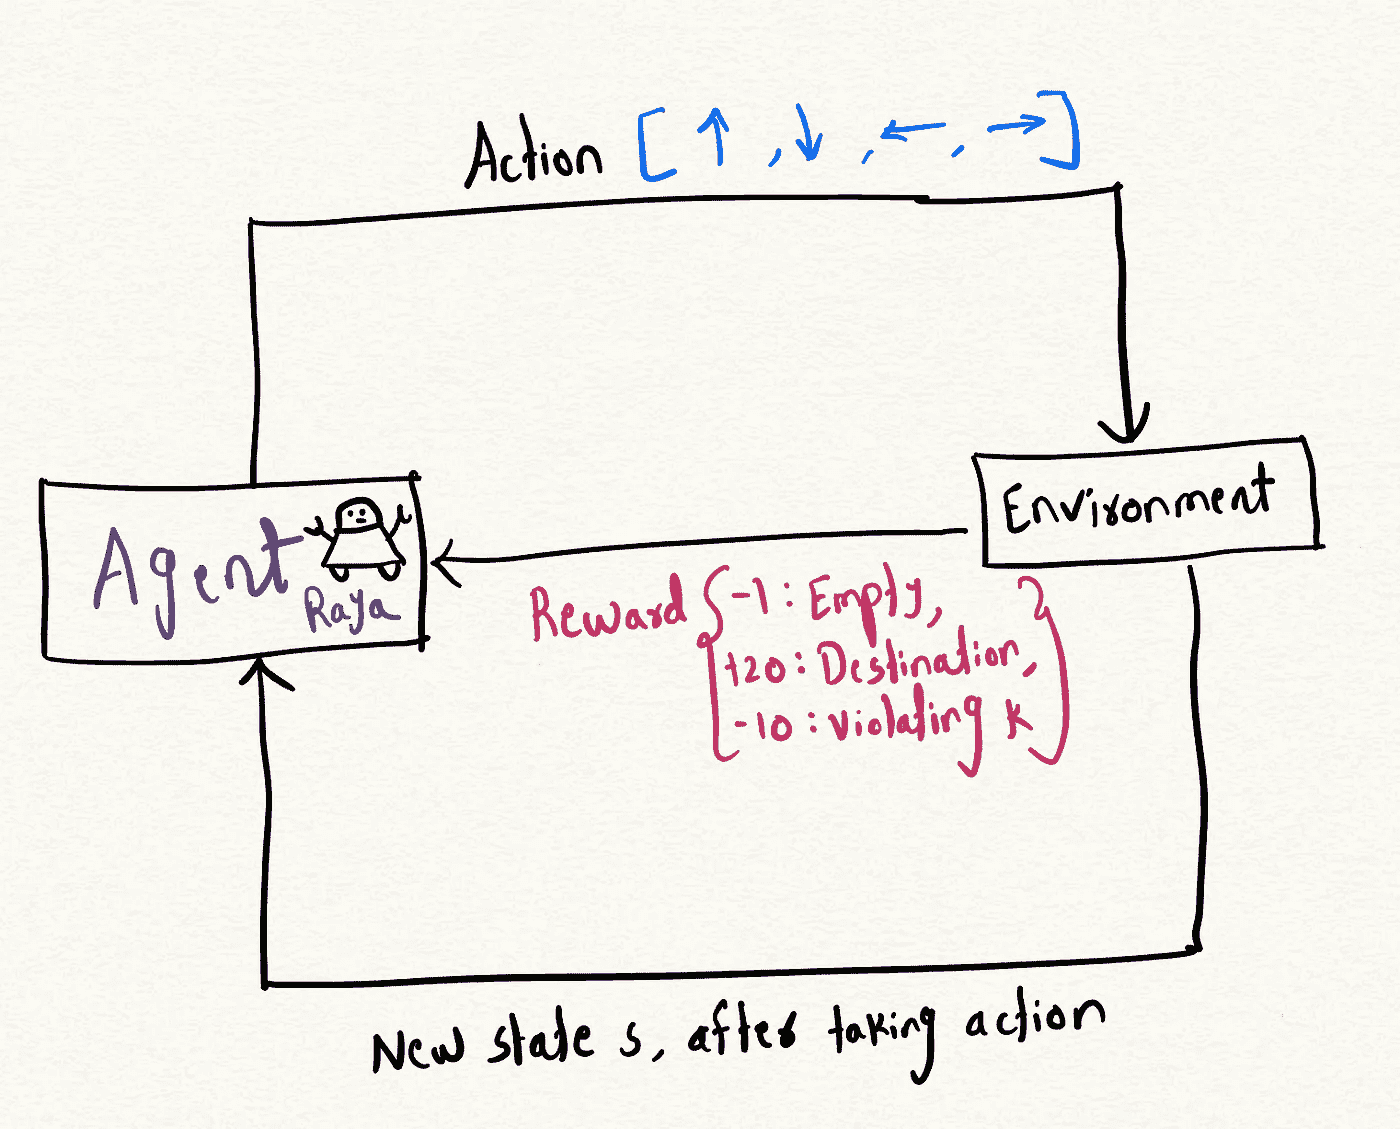 Action [↑, ↓, ←, →]
Agent
Raya
Environment
Reward {-1 : Empty,
+20 : Destination,
-10 : Violating k}
New state s, after taking action